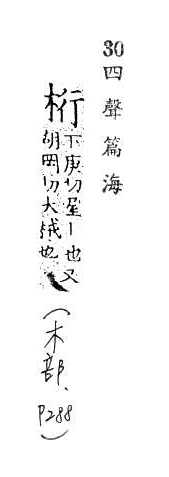 30 四聲篇海
桁 下庚切屋丨也又
胡罔切大械也
(木部、P288)